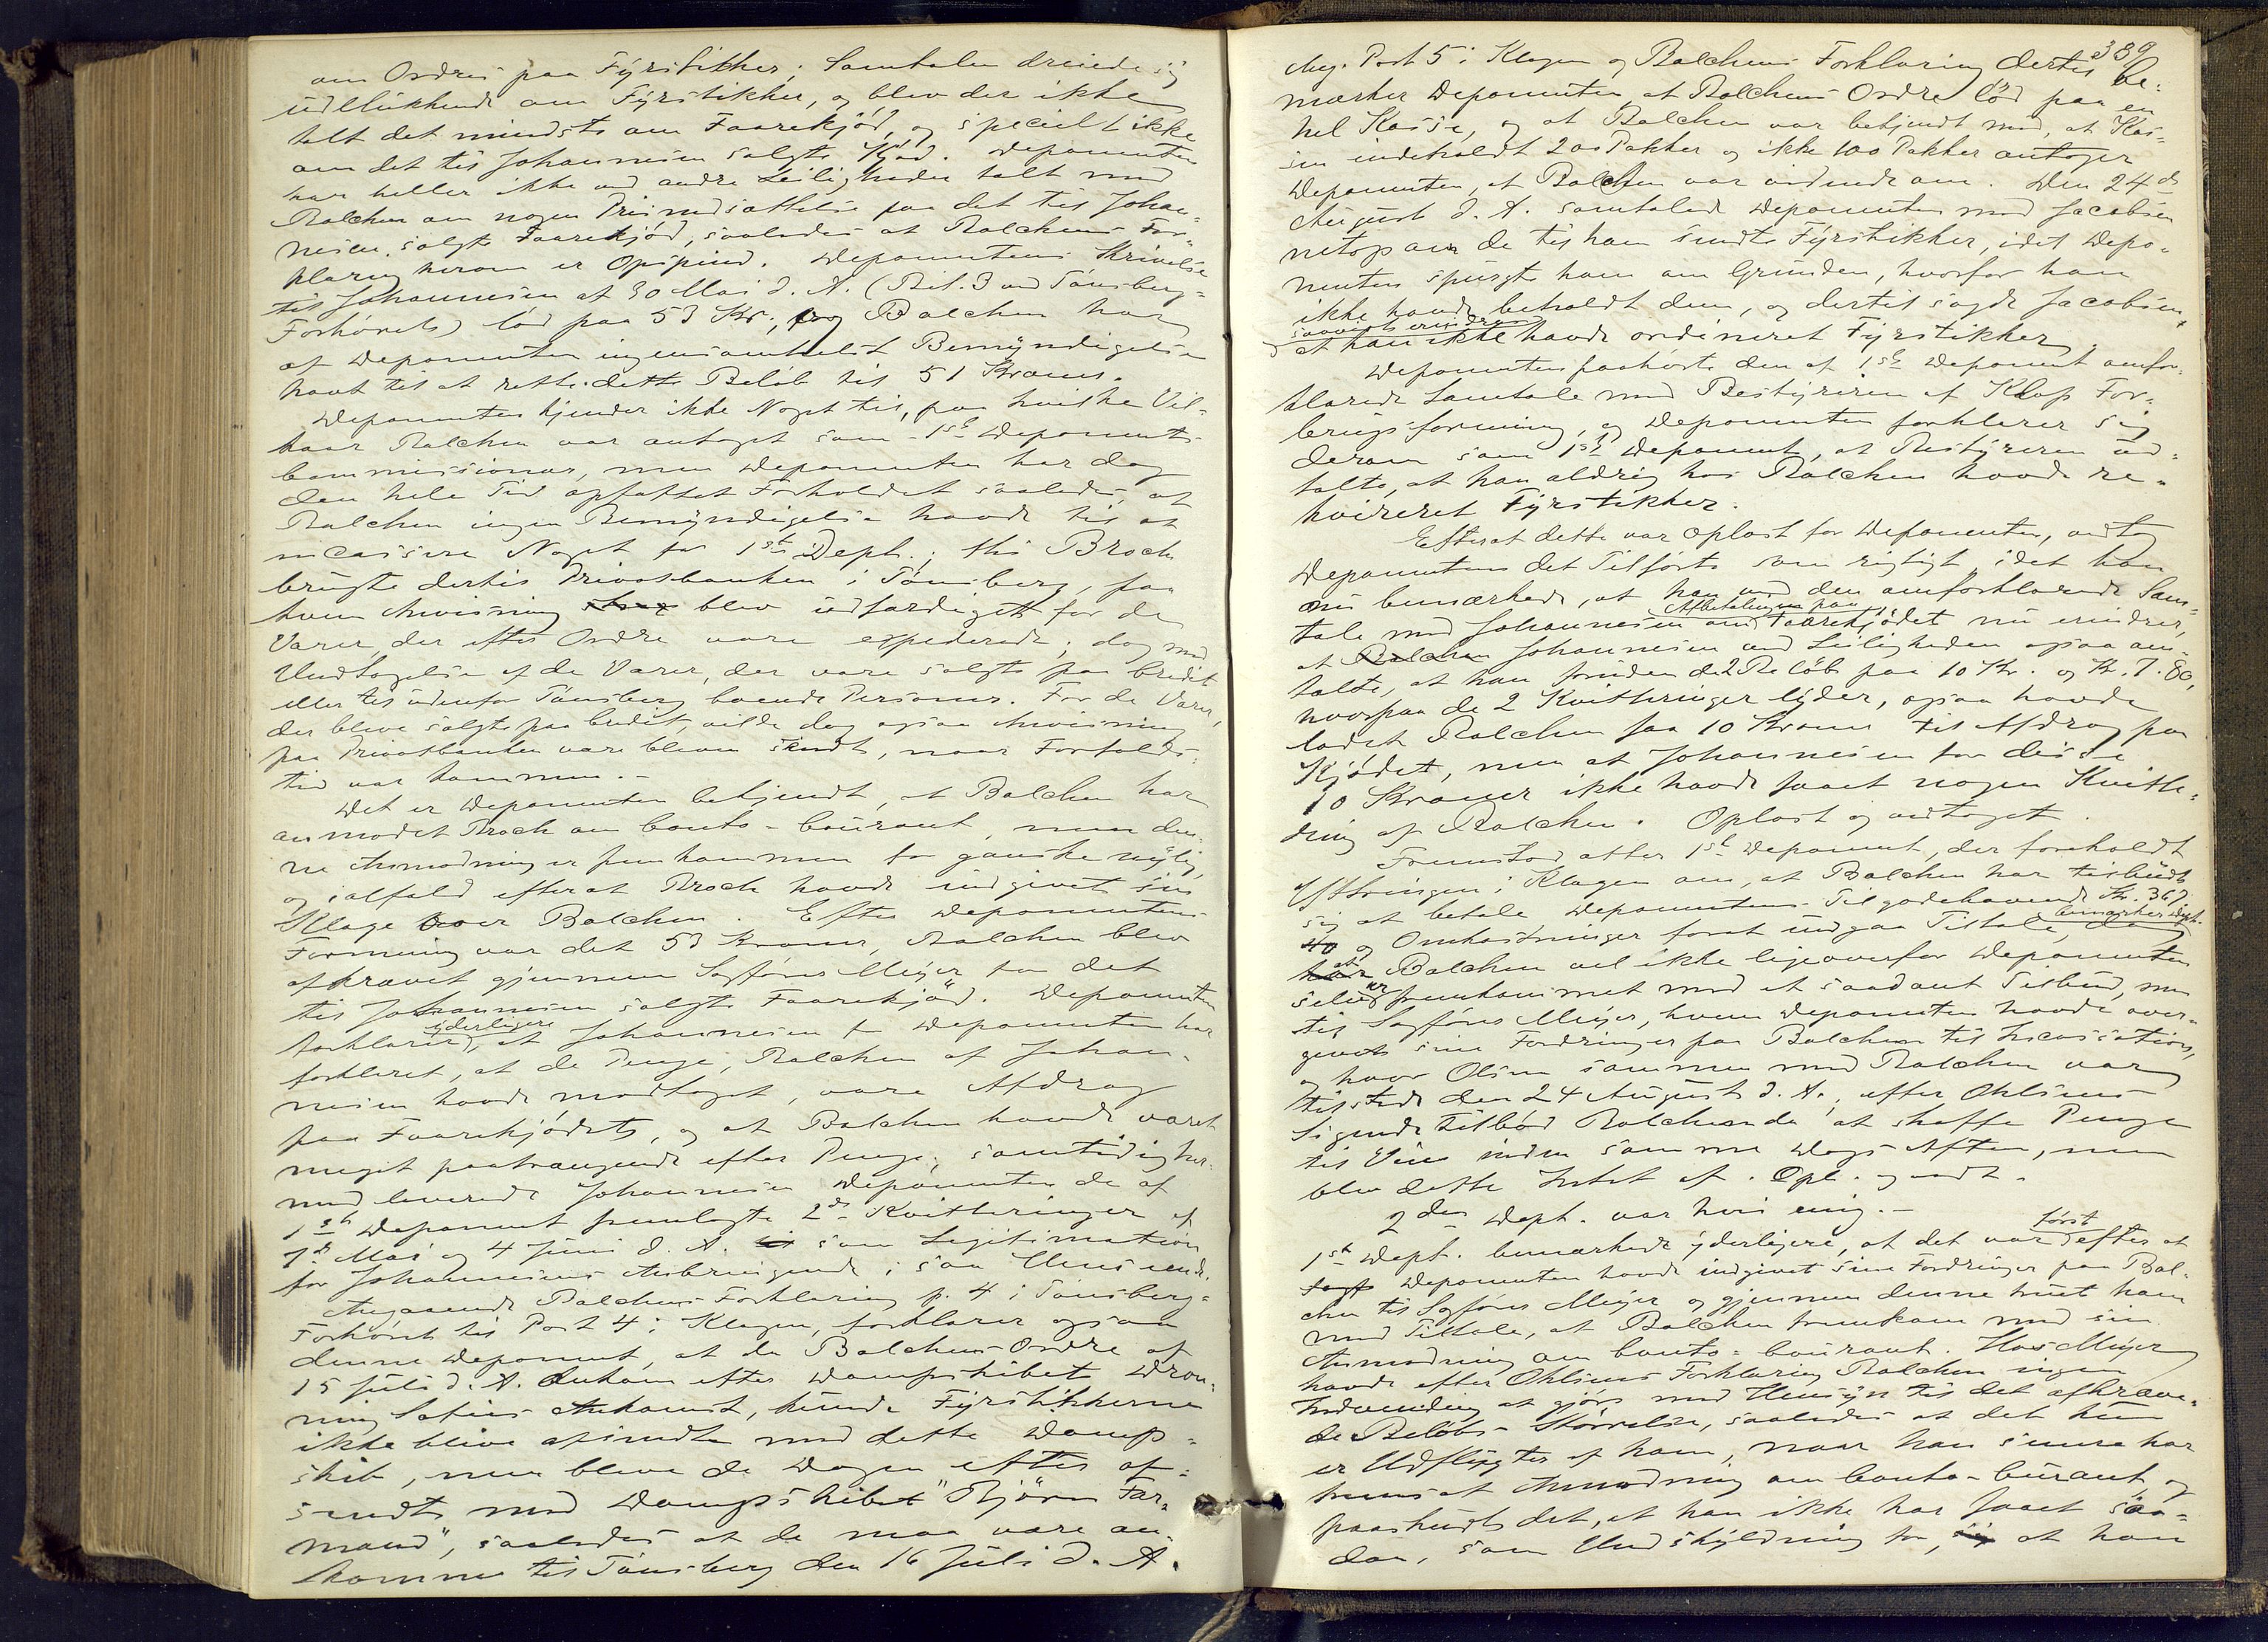 om Ordres paa Fyrstikker; Samtalen dreiede sig
udelukkende om Fyrstikker, og blev der ikke
talt det mindste om Faarekjød, og specielt ikke
om det til Johannesen solgte Kjød. Deponenten
har heller ikke ved andre Leiligheder talt med
Balchen om nogen Prisnedsættelse paa det til Johan-
nesen solgte Faarekjød, saaledes at Balchens For-
klaring herom er Opspind. Deponentens Skrivelse
til Johannesen af 30 Mai d. A. (Bil. 3 ved Tønsberg-
Forhørets) lød paa 53 Kr., og Balchen har
af Deponenten ingensomhelst Bemyndigelse
havt til at rette dette Beløb til 51 Kroner.
Deponenten kjender ikke Noget til, paa hvilke Vil-
kaar Balchen var antaget som 1ste Deponents
Commissionær, men Deponenten har dog
den hele Tid opfattet Forholdet saaledes, at
Balchen ingen Bemyndigelse havde til at
incassere Noget for 1ste Dept.; thi Broch
brugte dertil Privatbanken i Tønsberg, paa
hvem Anvisning blev udfærdiget for de
Varer, der efter Ordre vare expederede; dog med
Undtagelse af de Varer, der vare solgte paa Credit
eller til udenfor Tønsberg boende Personer. For de Varer,
der bleve solgte paa Credit, vilde dog ogsaa Anvisning
paa Privatbanken være bleven sendt, naar Forfalds-
tid var kommen.-
Det er Deponenten bekjendt, at Balchen har
anmodet Broch om Conto-Courant, men den-
ne Anmodning er fremkommen for ganske nylig,
og ialfald efterat Broch havde indgivet sin
Klage over Balchen. Efter Deponentens
Formening var det 53 Kroner, Balchen blev
afkrævet gjennem Sagfører Meyer for det
til Johannesen solgte Faarekjød. Deponenten
forklarer yderligere, at Johannesen for Deponenten har
forklaret, at de Penge, Balchen af Johan-
nesen havde modtaget, vare Afdrag
paa Faarekjødet, og at Balchen havde været
meget paatrængende efter Penge; samtidig her-
med leverede Johannesen Deponenten de af
1ste Deponent fremlagte 2de Kvitteringer af
7de Mai og 4 Juni d. A. som Legitimation
for Johannesens Anbringende i saa Henseende.
Angaaende Balchens Forklaring p. 4 i Tønsberg-
Forhøret til Post 4 i Klagen, forklarer ogsaa
denne Deponent, at da Balchens Ordre af
15 Juli d. A. ankom efter Dampskibet Dron-
ning Sofies Ankomst, kunde Fyrstikkerne
ikke blive afsendte med dette Damp-
skib, men bleve de Dagen efter af-
sendt med Dampskibet "Bjørn Far-
mand", saaledes at de maa være an-
komne til Tønsberg den 16 Juli d. A.
389
Ang. Post 5 i Klagen og Balchens Forklaring dertil be-
mærker Deponenten, at Balchens Ordre lød paa en
hel Kasse, og at Balchen var bekjendt med, at Kas-
sen indeholdt 200 Pakker og ikke 100 Pakker antager
Deponenten, at Balchen var vidende om. Den 24de
August d. A. samtalede Deponenten med Jacobsen
netop om de til ham sendte Fyrstikker, idet Depo-
nenten spurgte ham om Grunden, hvorfor han
ikke havde beholdt dem, og dertil sagde Jacobsen,
saavidt erindres
at han ikke havde ordineret Fyrstikker.
Deponenten paahørte den af 1ste Deponent omfor-
klarede Samtale med Bestyreren af Klop For-
brugsforening, og Deponenten forklarer sig
derom som 1ste Deponent, at Bestyreren ud-
talte, at han aldrig hos Balchen havde re-
kvireret Fyrstikker.
Efterat dette var oplæst for Deponenten, vedtog
Deponenten det Tilførte som rigtigt, idet han
nu bemærkede, at han ved den omforklarede Sam-
tale med Johannesen om Afbetalingen paa Faarekjødet nu erindrer,
at Balchen Johannesen ved Leiligheden ogsaa om-
talte, at han foruden de 2 Beløb paa 10 Kr. og Kr. 7.80,
hvorpaa de 2 Kvitteringer lyder, ogsaa havde
ladet Balchen faa 10 Kroner til Afdrag paa
Kjødet, men at Johannesen for disse
10 Kroner ikke havde faaet nogen Kvitte-
ring af Balchen. Oplæst og vedtaget.
Fremstod atter 1ste Deponent, der foreholdt
Yttringen i Klagen om, at Balchen har tilbudt
sig at betale Deponentens Tilgodehavende Kr. 367.
40 og Omkostninger forat undgaa Tiltale, bemærker Dept.
at Balchen vel ikke ligeoverfor Deponenten
selv er fremkommet med et saadant Tilbud, men
til Sagfører Meyer, hvem Deponenten havde over-
givet sine Fordringer paa Balchen til Incassation,
og hvor Olsen sammen med Balchen var
tilstede den 24 August d. A., efter Ohlsens
Sigende tilbød Balchen da at skaffe Penge
til Veie inden samme Dags Aften, men
blev dette Intet af. Opl. og vedt.
2den Dept. var heri enig.-
1ste Dept. bemærkede yderligere, at det var først efter at
Deponenten havde indgivet sine Fordringer paa Bal-
chen til Sagfører Meyer og gjennem denne truet ham
med Tiltale, at Balchen fremkom med sin
Anmodning om Conto-Courant. Hos Meyer
havde efter Ohlsens Forklaring Balchen ingen
Indvending at gjøre med Hensyn til det afkræve-
de Beløbs Størrelse, saaledes at det kun
er Udflugter af ham, naar han senere har
fremsat Anmodning om Conto-Courant, og
paaskudt det, at han ikke har faaet saa-
dan, som Undskyldning for, at han